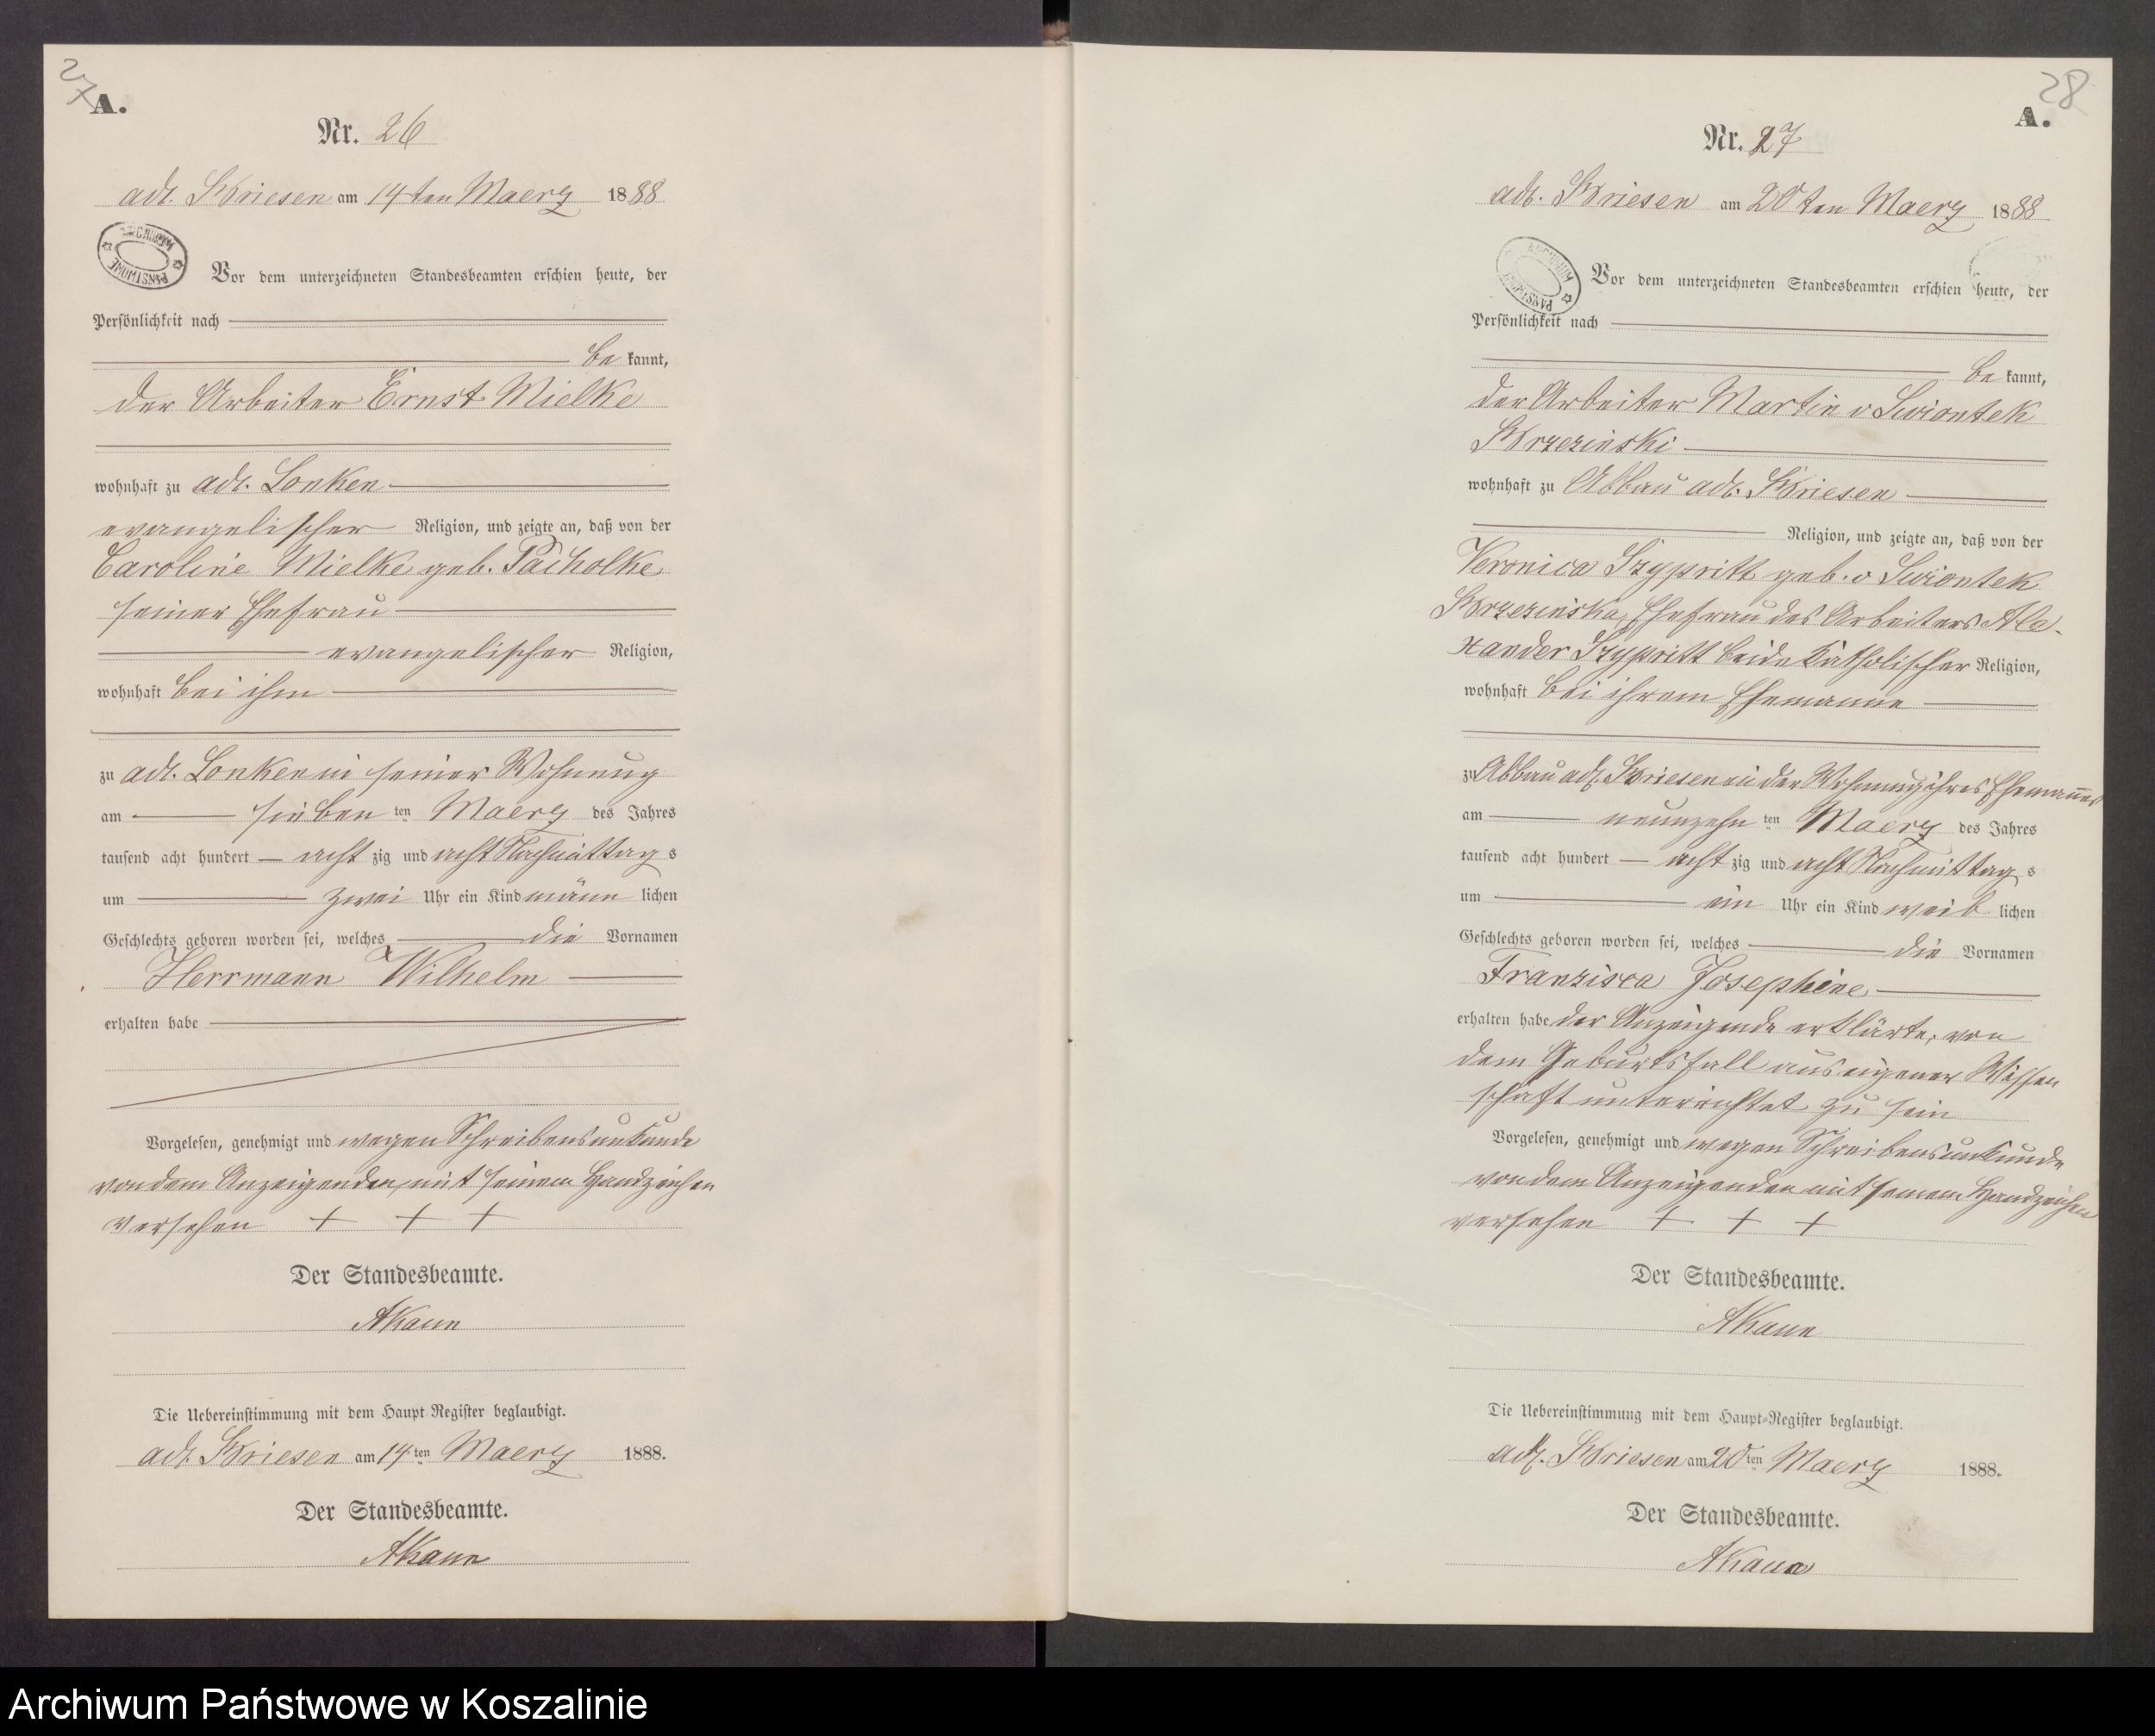 27
A.
Nr. 26
adl. Briesen am 14ten Maerz 1888
ARCHIWUM PAŃSTWOWE
Vor dem unterzeichneten Standesbeamten erschien heute, der
Persönlichkeit nach
be kannt,
der Arbeiter Ernst Mielke
wohnhaft zu adl. Lonken
evangelischer Religion, und zeigte an, daß von der
Caroline Mielke geb. Pacholke
seiner Ehefrau
evangelischer Religion,
wohnhaft bei ihm
zu adl. Lonken in seiner Wohnung
am sieben ten Maerz des Jahres
tausend acht hundert acht zig und acht Nachmittag s
um zwei Uhr ein Kind männ lichen
Geschlechts geboren worden sei, welches die Vornamen
Herrmann Wilhelm
erhalten habe
Vorgelesen, genehmigt und wegen Schreibensunkunde
von dem Anzeigenden mit seinem Handzeichen
versehen + + +
Der Standesbeamte.
AKaun
Die Uebereinstimmung mit dem Haupt Register beglaubigt.
adl. Briesen am 14. ten Maerz 1888.
Der Standesbeamte.
AKaun
28
A.
Nr. 27
adl. Briesen am 20ten Maerz 1888
ARCHIWUM PAŃSTWOWE
Vor dem unterzeichneten Standesbeamten erschien heute, der
Persönlichkeit nach
be kannt,
der Arbeiter Martin v Swiontek
Brzezinski
wohnhaft zu Abbau adl. Briesen
Religion, und zeigte an, daß von der
Veronica Szypritt geb. v Swiontek
Brzezinska, Ehefrau des Arbeiters Ale-
xander Szypritt beide katholischer Religion,
wohnhaft bei ihrem Ehemanne
zu Abbau adl. Briesen in der Wohnung ihres Ehemannes
am neunzehn ten Maerz des Jahres
tausend acht hundert acht zig und acht Nachmittag s
um ein Uhr ein Kind weib lichen
Geschlechts geboren worden sei, welches die Vornamen
Franzisca Josephine
erhalten habe der Anzeigende erklärte, von
dem Geburtsfall aus eigener Wissen
schaft unterrichtet zu sein
Vorgelesen, genehmigt und wegen Schreibensunkunde
von dem Anzeigenden mit seinem Handzeichen
versehen + + +
Der Standesbeamte.
AKaun
Die Uebereinstimmung mit dem Haupt-Register beglaubigt.
adl. Briesen am 20 ten Maerz 1888.
Der Standesbeamte.
AKaun
Archiwum Państwowe w Koszalinie